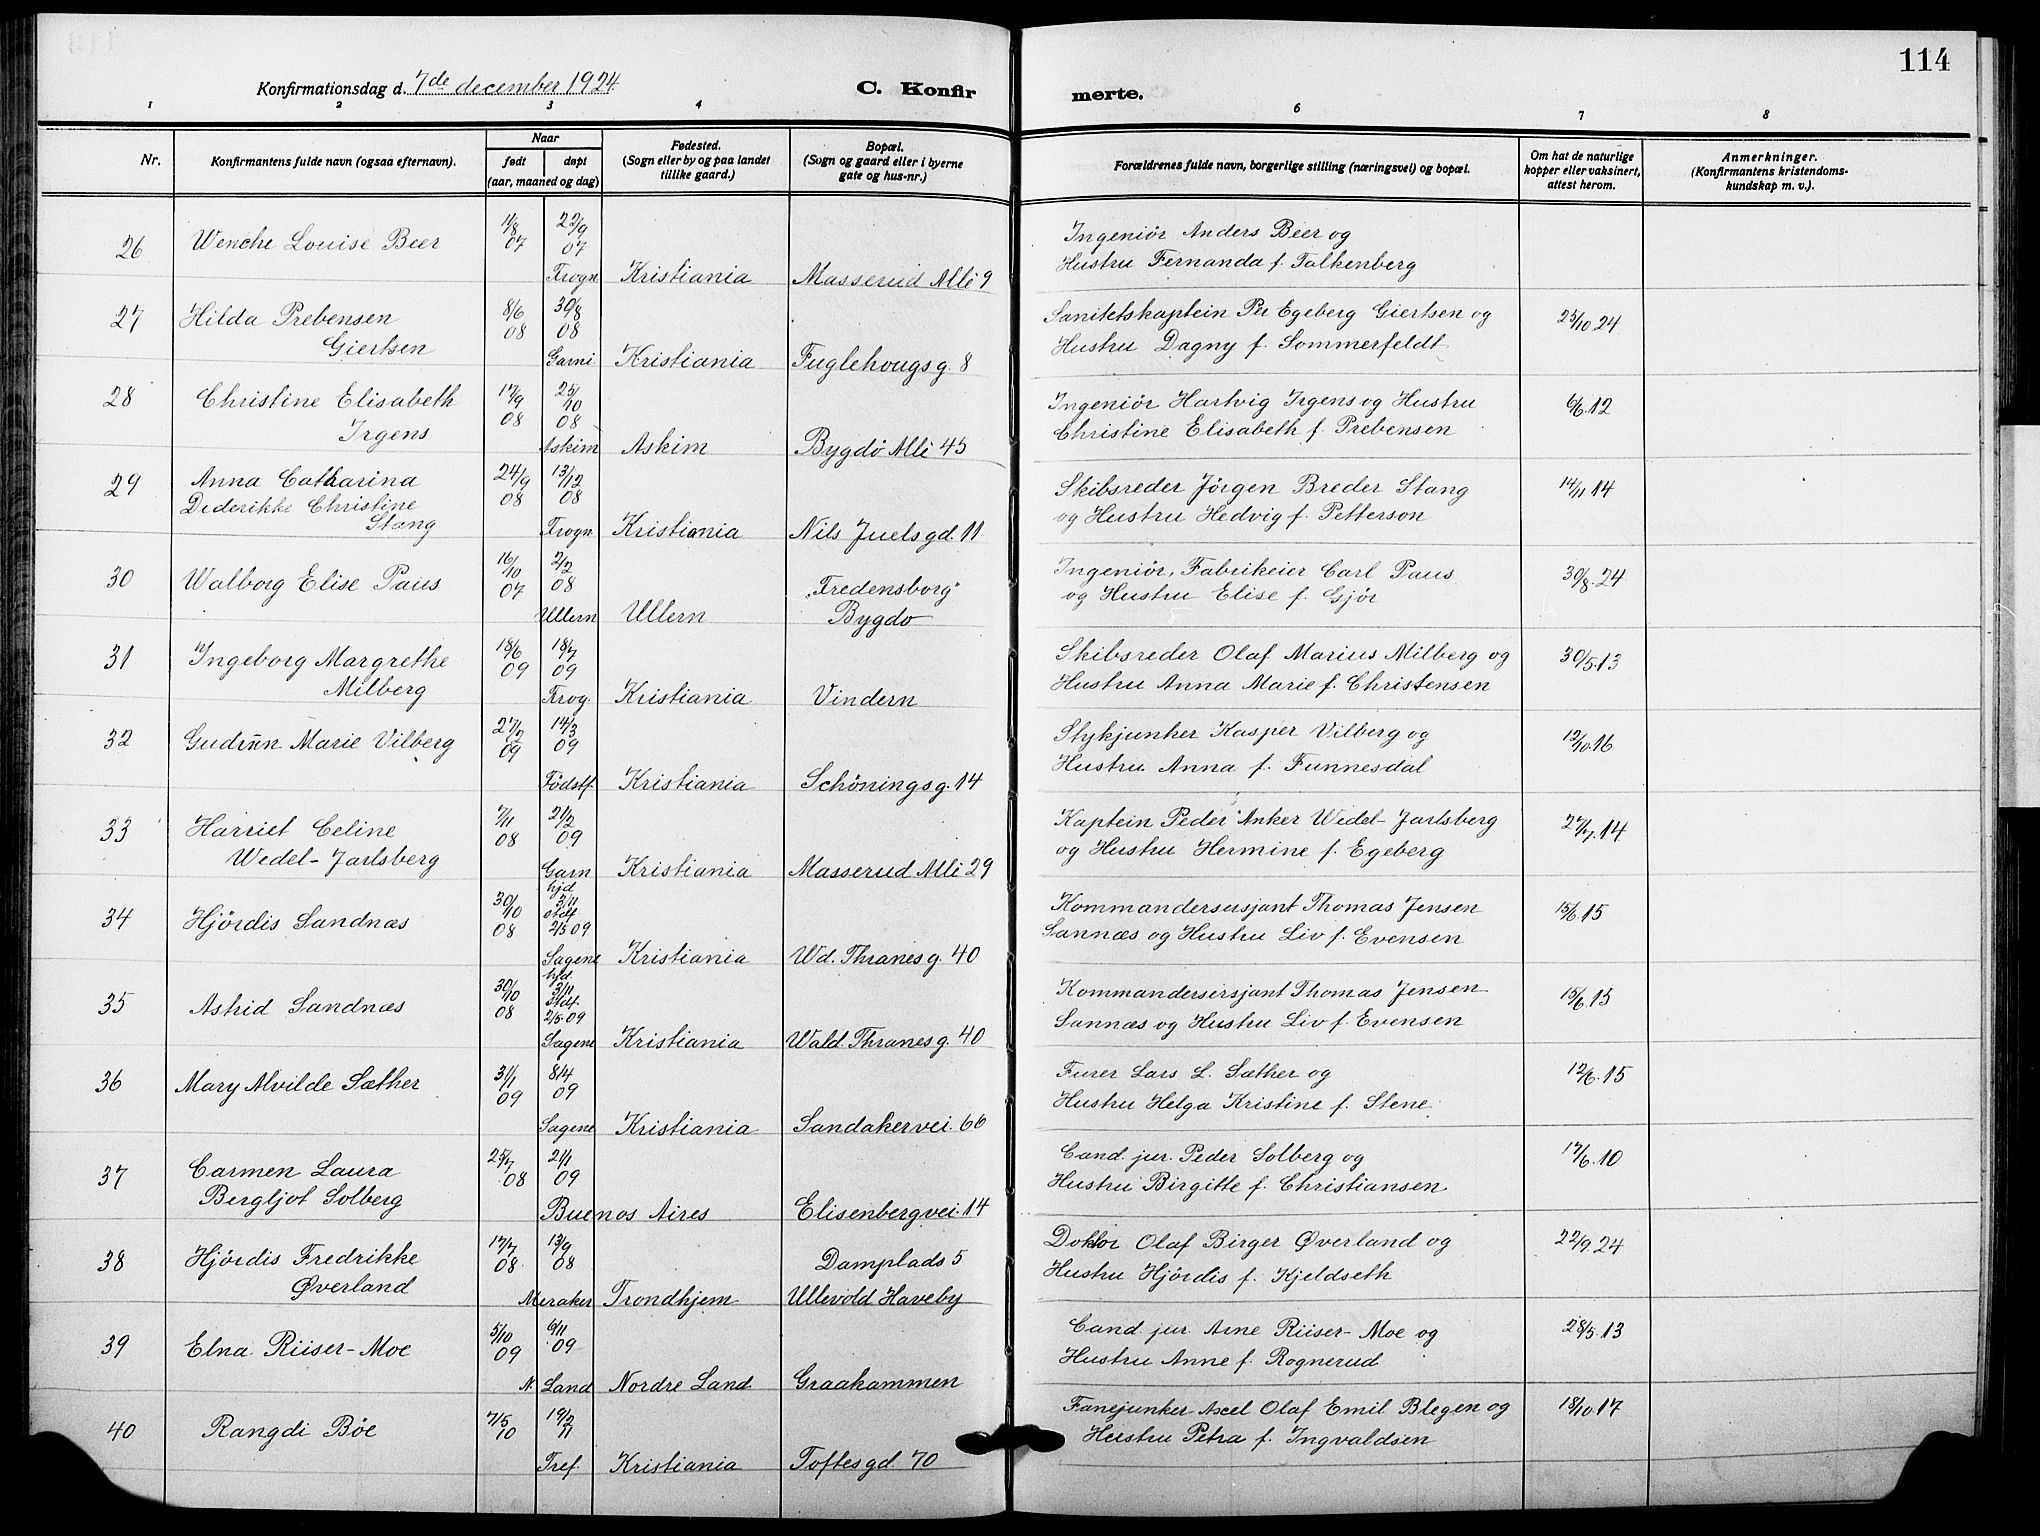 114
Konfirmationsdag d. 7de december 1924
C. Konfirmerte.
1 2 3 4 5 6 7 8
Nr.
Konfirmantens fulde navn (ogsaa efternavn).
Naar
født døpt
(aar, maaned og dag)
Fødested.
(Sogn eller by og paa landet
tillike gaard.)
Bopæl.
(Sogn og gaard eller i byerne
gate og hus-nr.)
Forældrenes fulde navn, borgerlige stilling (næringsvei) og bopæl.
Om hat de naturlige
kopper eller vaksinert,
attest herom.
Anmerkninger.
(Konfirmantens kristendoms-
kundskap m. v.).
26 Wenche Louise Beer 11/8 07 22/9 07 Ingeniör Anders Beer og
Frogn. Kristiania Masserud Allé 9 Hustru Fernanda f. Falkenberg
27 Hilda Prebensen 8/6 08 30/8 08 Sanitetskaptein Per Egeberg Giertsen og 23/10.24
Giertsen Garni. Kristiania Fuglehougs g. 8 Hustru Dagny f. Sommerfeldt
28 Christine Elisabeth 17/9 08 25/10 08 Ingeniör Hartvig Irgens og Hustru 6/6.12
Irgens Askim Askim Bygdö Allé 45 Christine Elisabeth f. Prebensen
29 Anna Catharina 24/9 08 13/12 08 Skibsreder Jörgen Breder Stang 14/11 14
Diderikke Christine
Stang Frogn. Kristiania Nils Juels gd. 11 og Hustru Hedvig f. Petterson
30 Walborg Elise Paus 16/10 07 2/2 08 „Fredensborg" Ingeniör, Fabrikeier Carl Paus 30/8.24
Ullern Ullern Bygdö og Hustru Elise f. Gjör
31 Ingeborg Margrethe 18/6 09 18/7 09 Skibsreder Olaf Marius Milberg og 30/5.13
Milberg Frog. Kristiania Vindern Hustru Anna Marie f. Christensen
32 Gudrun Marie Vilberg 27/2 09 14/3 09 Stykjunker Kasper Vilberg og 12/10.16
Födstf. Kristiania Schönings g. 14 Hustru Anna f. Funnesdal
33 Harriet Celine 7/11 08 21/2 09 Kaptein Peder Anker Wedel-Jarlsberg 27/7.14
Wedel-Jarlsberg Garn Kristiania Masserud Allé 29 og Hustru Hermine f. Egeberg
34 Hjördis Sandnæs 30/10 08 hjd. 3/11 stdf. 2/5 09 Kommandersersjant Thomas Jensen 15/6.15
Sagene Kristiania Wd. Thranes g. 40 Sannæs og Hustru Liv f. Evensen
35 Astrid Sandnæs 30/10 08 hjd. 3/11 stdf. 2/5.09 Kommandersersjant Thomas Jensen 15/6.15
Sagene Kristiania Wald. Thranes g. 40 Sannæs og Hustru Liv f. Evensen
36 Mary Alvilde Sæther 31/1 09 8/4 09 Furer Lars L. Sæther og 12/6.15
Sagene Kristiania Sandakervei. 66 Hustru Helga Kristine f. Stene.
37 Carmen Laura 25/7 08 21/1 09 Cand. jur. Peder Solberg og 17/6.10
Bergljot Solberg Buenos Aires Elisenbergvei. 14 Hustru Birgitte f. Christiansen
38 Hjördis Fredrikke 17/7 08 13/9 08 Damplads 5 Doktor Olaf Birger Øverland og 22/9.24
Øverland Meraker Trondhjem Ullevold Haveby Hustru Hjördis f. Kjeldseth
39 Elna Riiser-Moe 5/10 09 6/11 09 Cand. jur. Arne Riiser-Moe og 28/5.13
N. Land Nordre Land Graakammen Hustru Anne f. Rognerud
40 Rangdi Böe 7/5 10 19/2 11 Fanejunker Axel Olaf Emil Blegen og 18/10.17
Tref. Kristiania Toftes gd. 70 Hustru Petra f. Ingvaldsen